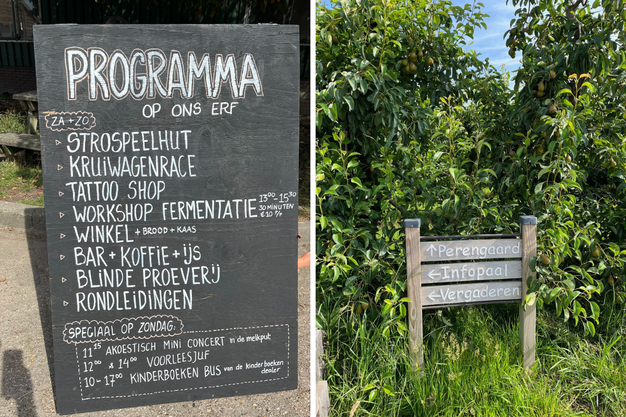 PROGRAMMA
OP ONS ERF
ZA + ZO
STROSPEELHUT
KRUIWAGENRACE
TATTOO SHOP
WORKSHOP FERMENTATIE 13⁰⁰-15³⁰
30 MINUTEN
€10 P/P
WINKEL + BROOD + KAAS
BAR + KOFFIE + IJS
BLINDE PROEVERIJ
RONDLEIDINGEN
SPECIAAL OP ZONDAG:
11¹⁵ AKOESTISCH MINI CONCERT in de melkput
12⁰⁰ & 14⁰⁰ VOORLEESJUF
10-17⁰⁰ KINDERBOEKEN BUS van de kinderboeken
dealer
↑Perengaard
←Infopaal
←Vergaderen